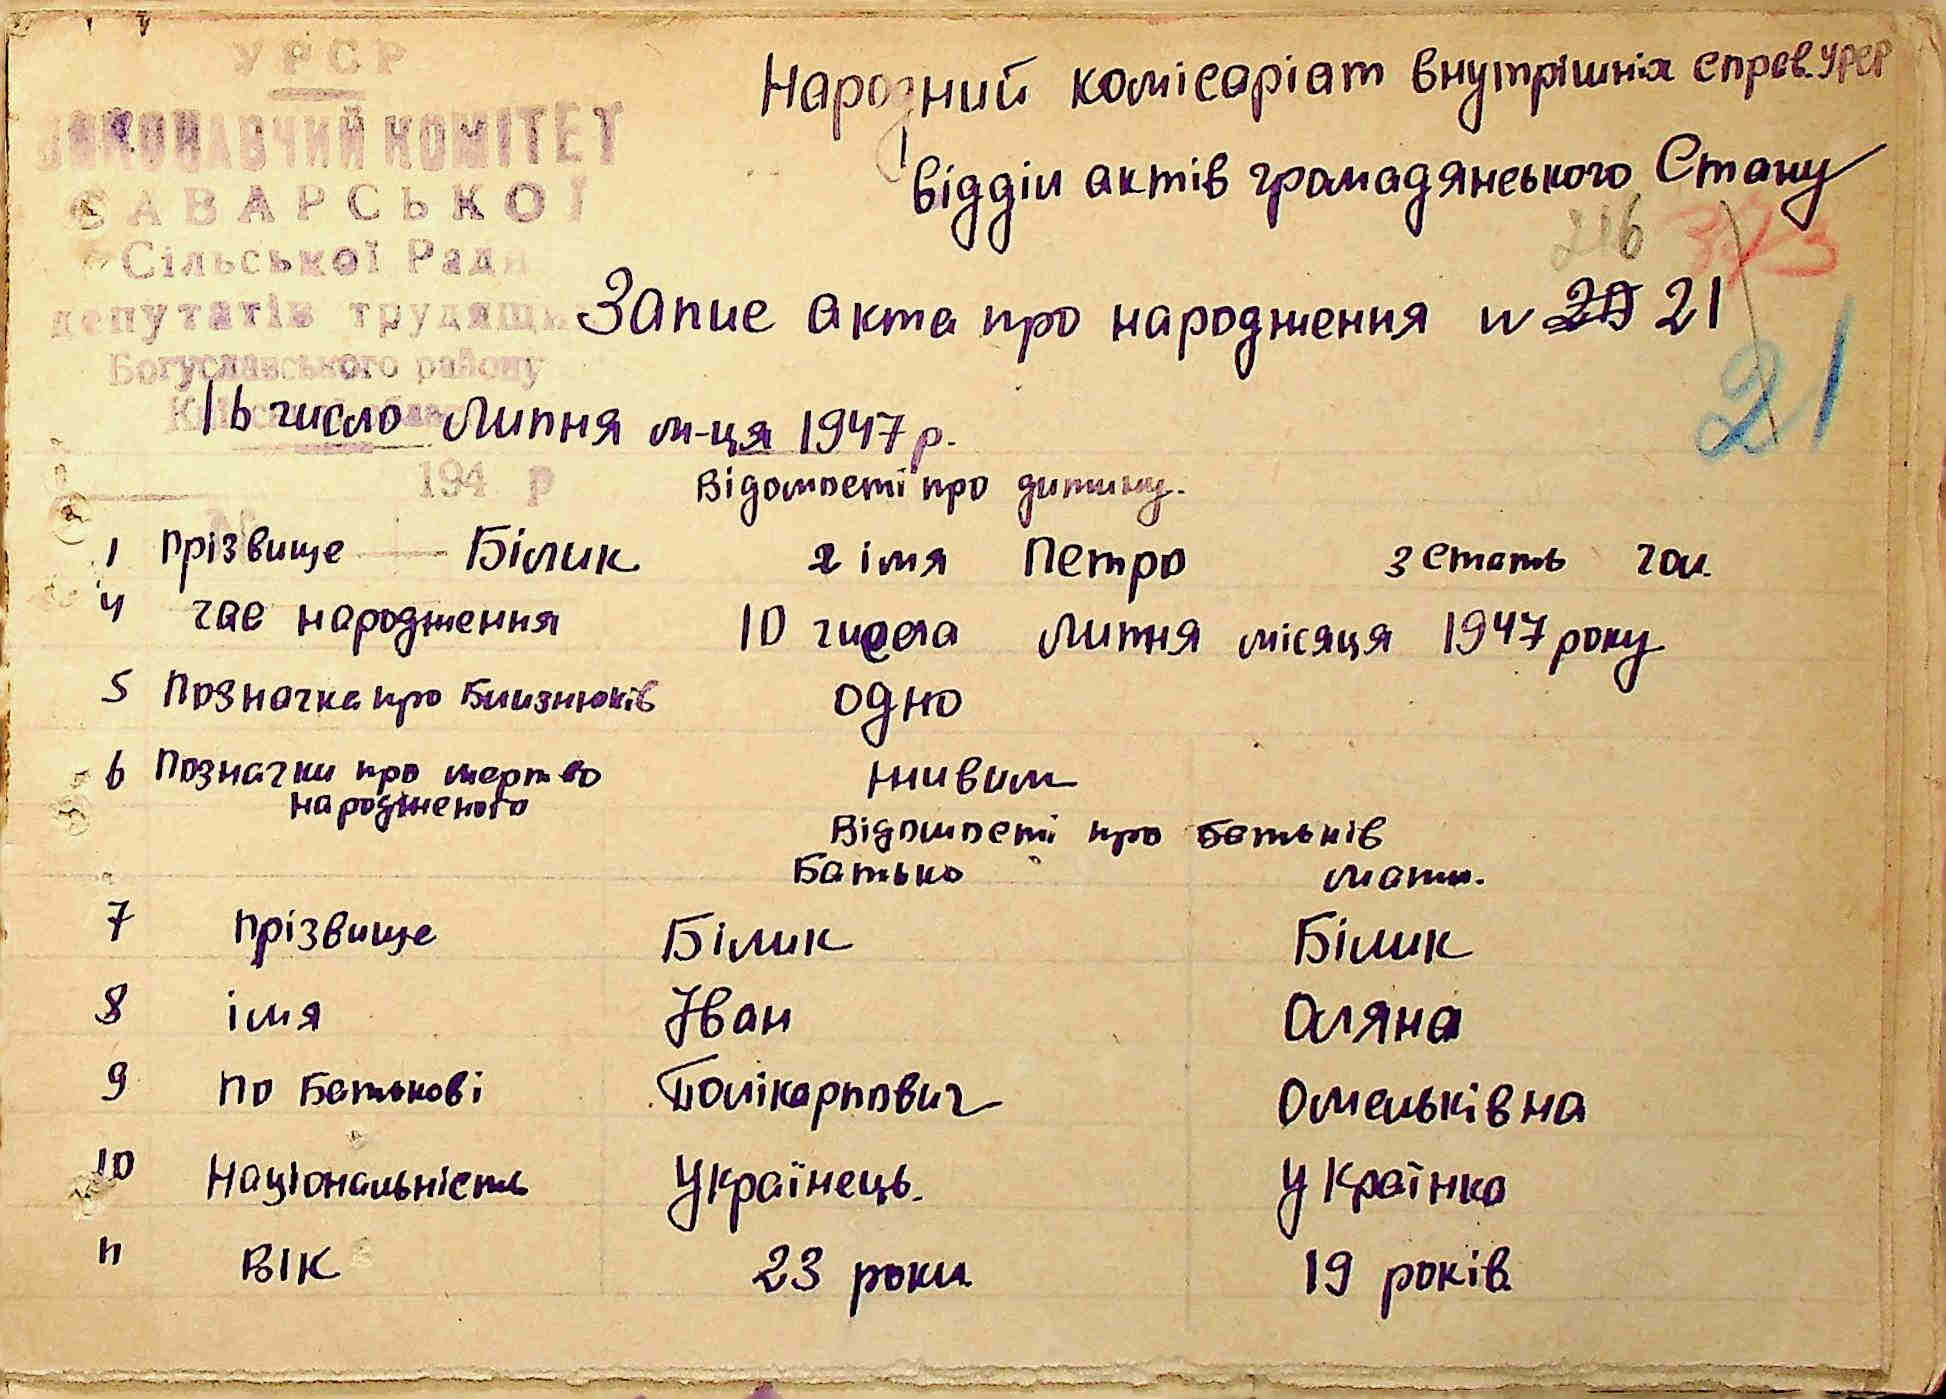 УРСР
ВИКОНАВЧИЙ КОМІТЕТ
САВАРСЬКОЇ
Сільської Ради
депутатів трудящих
Богуславського району
194 р
Народний комісаріат внутрішніх справ УРСР
відділ актів громадянського Стану
216 373
Запис акта про народження N 20 21
21
16 число Липня м-ця 1947 р.
Відомості про дитину.
1 Прізвище Білик 2 імя Петро 3 Стать чол.
4 час народження 10 числа Липня місяця 1947 року
5 Позначка про Близнюків одно
6 Позначки про мертво народженого живим
Відомості про батьків
Батько мати.
7 Прізвище Білик Білик
8 імя Іван Оляна
9 По Батькові Полікарпович Омельківна
10 Національність Українець. Українка
11 Вік 23 роки 19 років